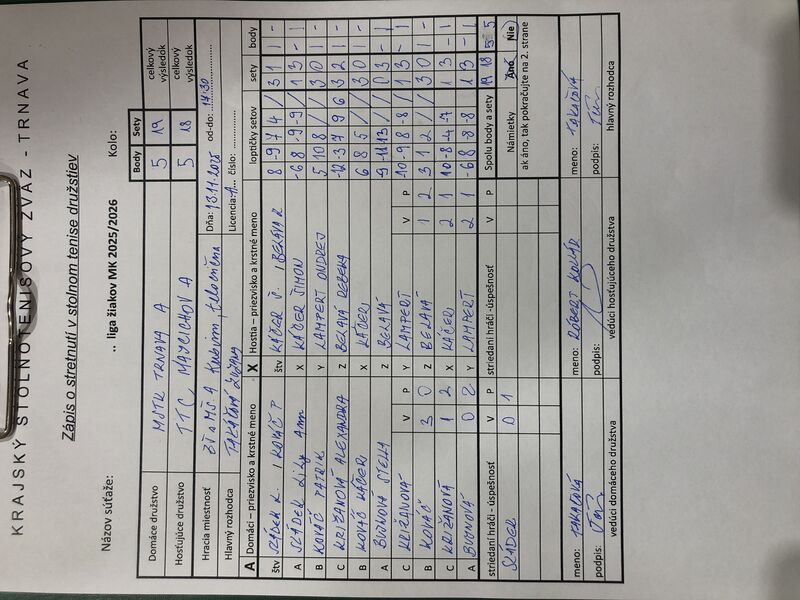 KRAJSKÝ STOLNOTENISOVÝ ZVÄZ - TRNAVA
Zápis o stretnutí v stolnom tenise družstiev
Názov súťaže: .. liga žiakov MK 2025/2026 Kolo:
Body Sety
Domáce družstvo MSTK TRNAVA A 5 19 celkový výsledok
Hosťujúce družstvo TTC MAJCICHOV A 5 18 celkový výsledok
Hracia miestnosť ZŠ a MŠ. A Kubinu, telocvičňa Dňa: 13.11.2025 od-do: 17:30
Hlavný rozhodca Licencia: A číslo:
A Domáci – priezvisko a krstné meno X Hostia – priezvisko a krstné meno loptičky setov sety body
štv SLÁDEK L. / KOVÁČ P štv KAČER Š. / BELAVÁ R 8 -9 7 4 / 3 1 1 -
A SLÁDEK X KAČER ŠIMON -6 8 -9 -9 / 1 3 - 1
B KOVÁČ PATRIK Y LAMPERT ONDREJ 5 10 8 / / 3 0 1 -
C KRIŽANOVÁ ALEXANDRA Z BELAVÁ REBEKA -12 -3 7 9 6 3 2 1 -
B KOVÁČ X KAČER 6 8 5 / / 3 0 1 -
A STELLA Z BELAVÁ -9 -11 -13 / / 0 3 - 1
V P V P
C KRIŽANOVÁ Y LAMPERT -10 -9 8 -8 / 1 3 - 1
B KOVÁČ 3 0 Z BELAVÁ 1 2 3 1 2 / / 3 0 1 -
C KRIŽANOVÁ 1 2 X KAČER 2 1 -10 -8 4 -7 1 3 - 1
A 0 2 Y LAMPERT 2 1 -6 8 -8 -8 1 3 - 1
striedaní hráči - úspešnosť V P striedaní hráči - úspešnosť V P Spolu body a sety 19 18 5 5
SLÁDEK 0 1
Námietky Áno Nie
ak áno, tak pokračujte na 2. strane
meno: meno: RÓBERT KOLLÁR meno:
podpis: podpis: podpis:
vedúci domáceho družstva vedúci hosťujúceho družstva hlavný rozhodca